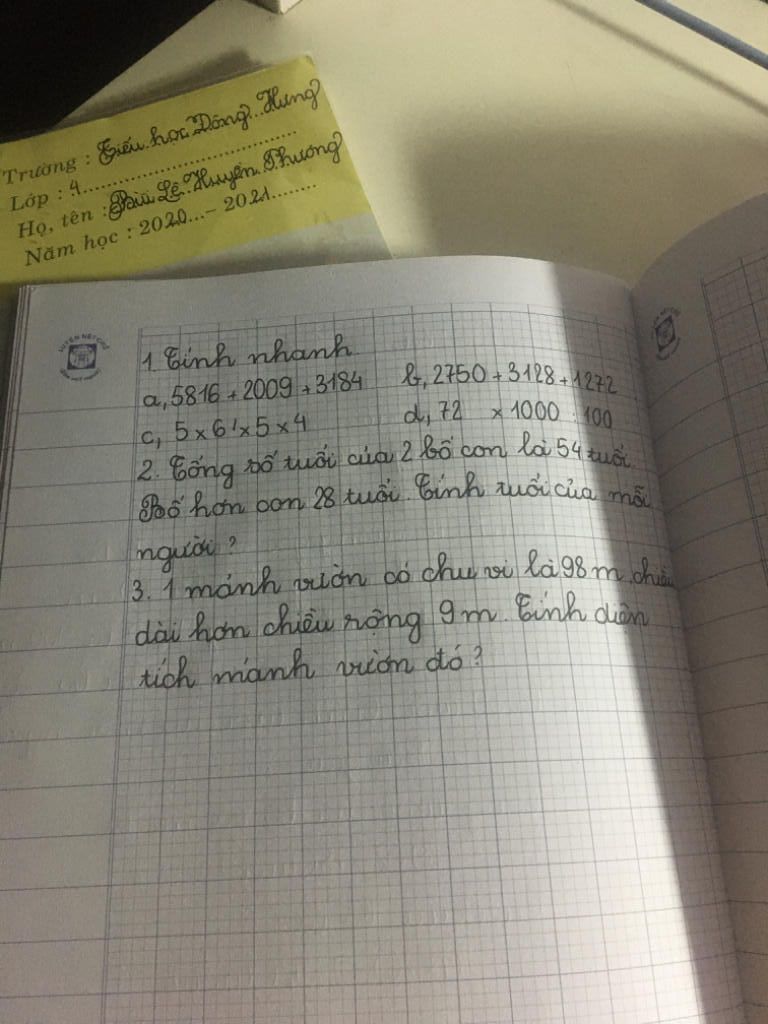 Trường : Tiểu học Đông Hưng
Lớp : 4
Họ, tên : Bùi Lê Huyền Thương
Năm học : 2020 - 2021
LUYỆN NÉT CHỮ
1 Tính nhanh
a, 5816 + 2009 + 3184 b, 2750 + 3128 + 1272
c, 5 x 6 x 5 x 4 d, 72 x 1000 : 100
2. Tổng số tuổi của 2 bố con là 54 tuổi.
Bố hơn con 28 tuổi. Tính tuổi của mỗi
người ?
3. 1 mảnh vườn có chu vi là 98 m, chiều
dài hơn chiều rộng 9 m. Tính diện
tích mảnh vườn đó ?